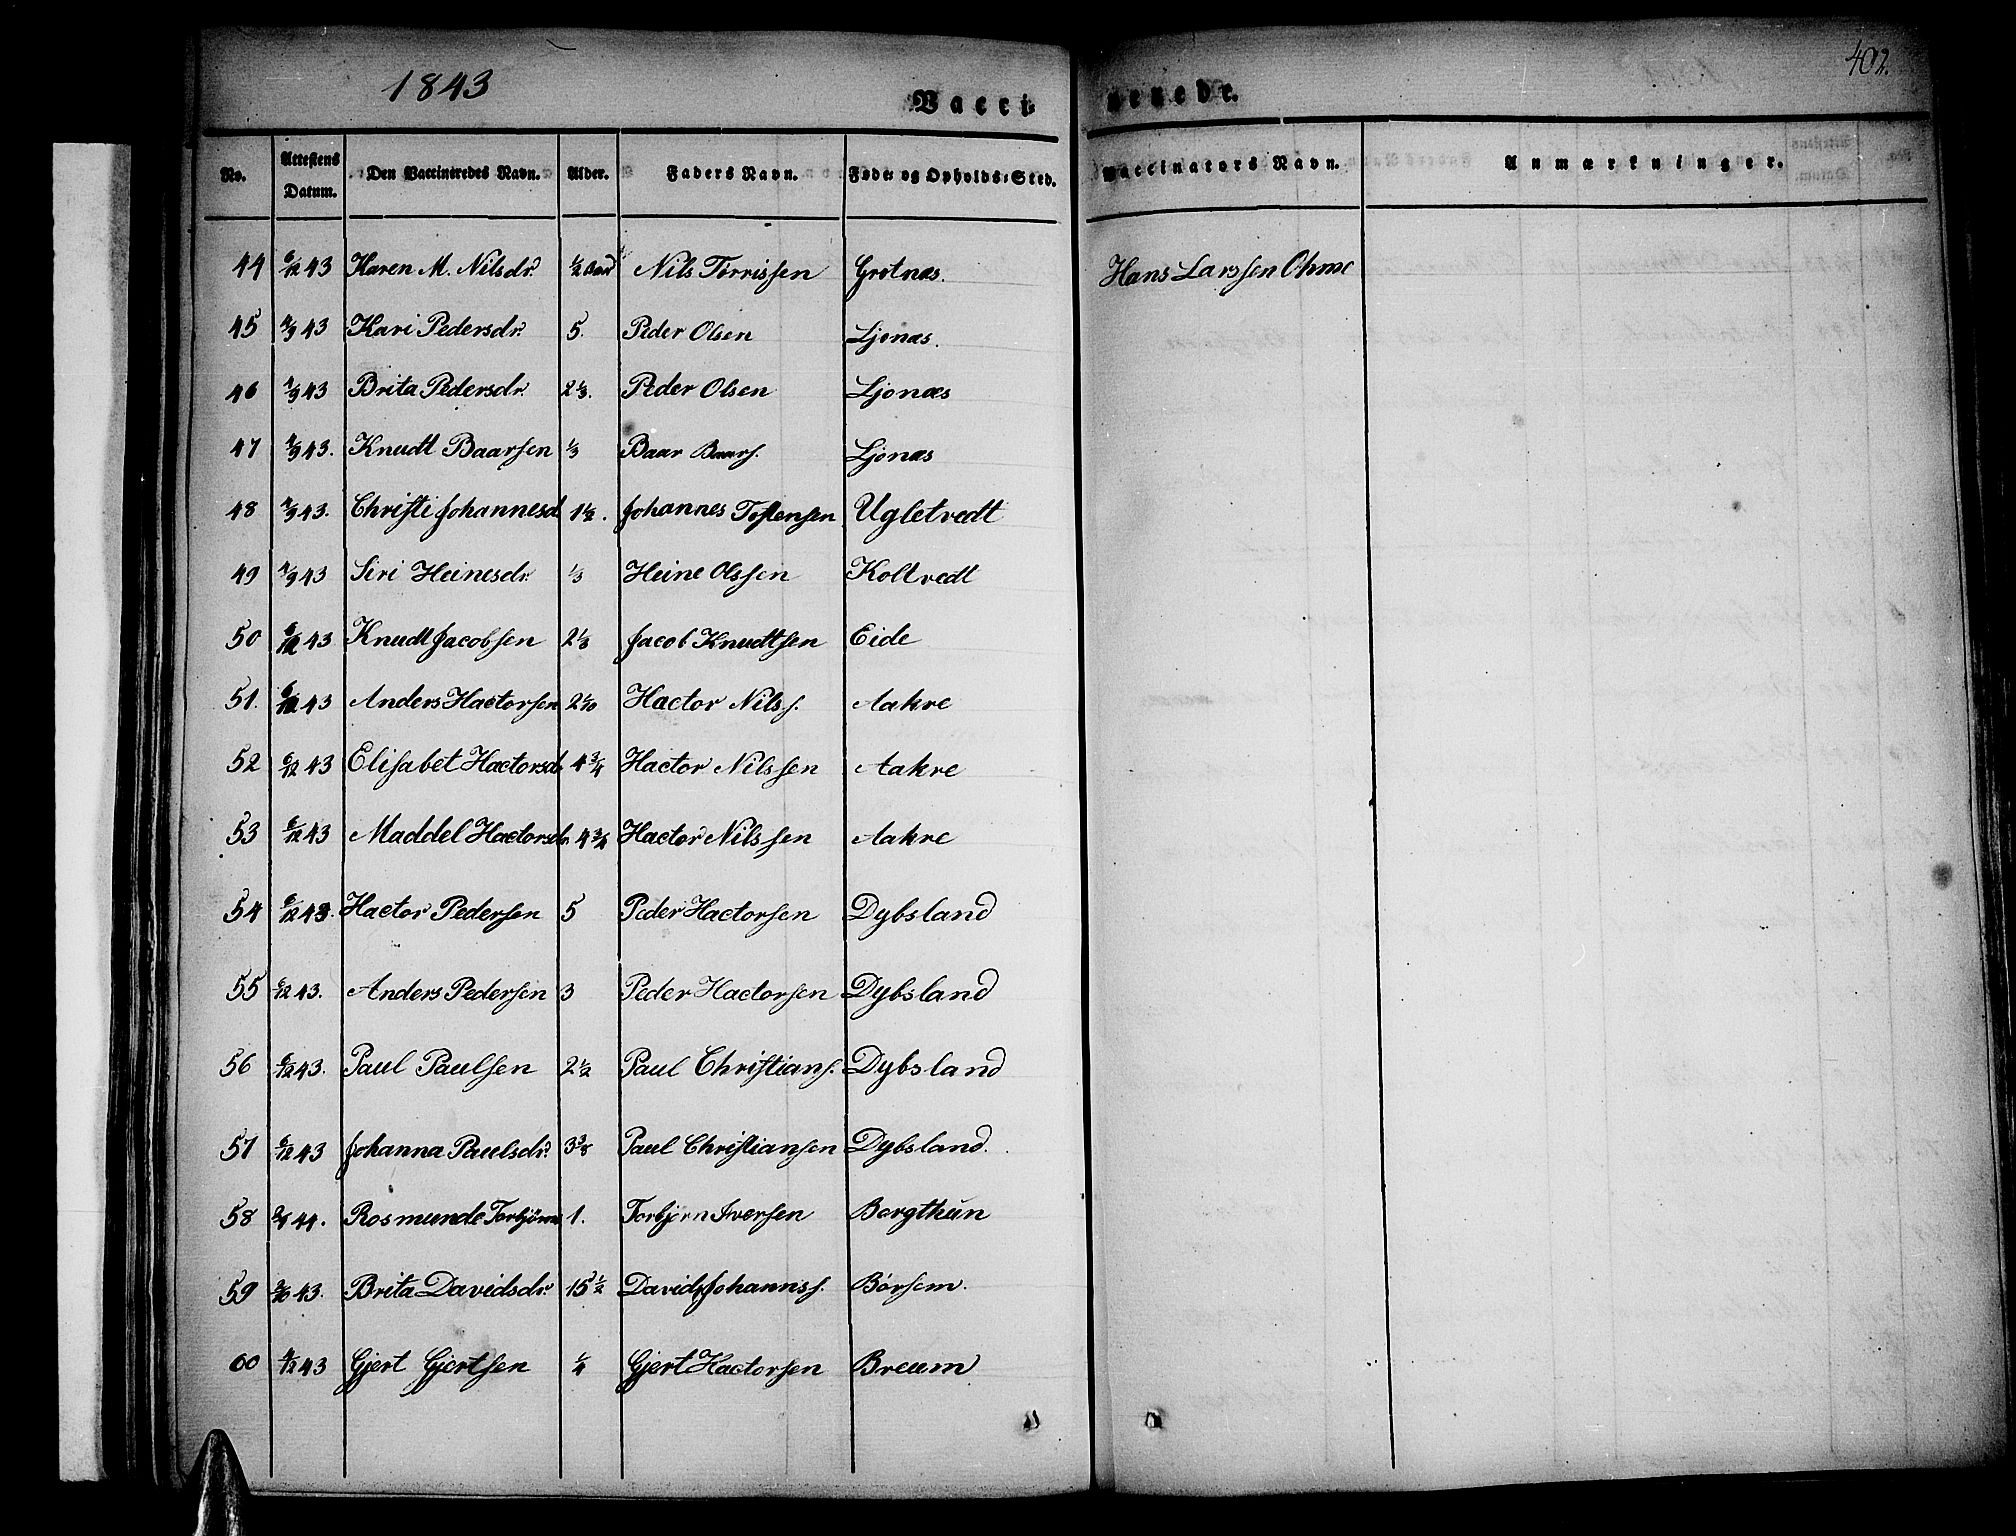 1843
402.
Vacci-
nerede.
No. Attestens Datum. Den Vaccineredes Navn. Alder. Faders Navn. Føde- og Opholds-Sted. Vaccinators Navn. Anmærkninger.
44 6/12 43 Karen M. Nilsdr. 1/2 Aar Nils Tørrissen Grotnæs. Hans Larssen Ohme
45 4/9 43 Kari Pedersdr. 5. Peder Olsen Ljonæs.
46 4/9 43 Brita Pedersdr. 2 1/3. Peder Olsen Ljonæs
47 4/9 43. Knudt Baarsen 1/3 Baar Baars. Ljonæs
48 4/9 43. Christi Johannesd 1 1/2. Johannes Tostensen Ugletvedt
49 4/9 43 Siri Heinesdr. 1/3 Heine Olssen Koltvedt
50 6/12 43 Knudt Jacobsen 2 1/3 Jacob Knudtsen Eide
51. 6/12 43 Anders Hactorsen 2 1/10 Hactor Nilss. Aakre
52 6/12 43 Elisabet Hactorsdr 4 3/4 Hactor Nilssen Aakre
53 6/12 43 Maddel Hactorsdr. 4 3/4 Hactor Nilssen Aakre
54 6/12 43. Hactor Pedersen 5 Peder Hactorsen Dybsland
55 6/12 43. Anders Pedersen 3 Peder Hactorsen Dybsland
56 6/12 43. Paul Paulsen 2 1/2 Paul Christians. Dybsland
57 6/12 43 Johanna Paulsdr. 3 3/8 Paul Christiansen Dybsland.
58 44. Rosmunde Torbjørns 1. Torbjørn Iversen Borgthun
59 43. Brita Davidsdr. 15 1/2 David Johanns. Børsem.
60 4/12 43 Gjert Gjertsen 1/4 Gjert Hactorsen Breum